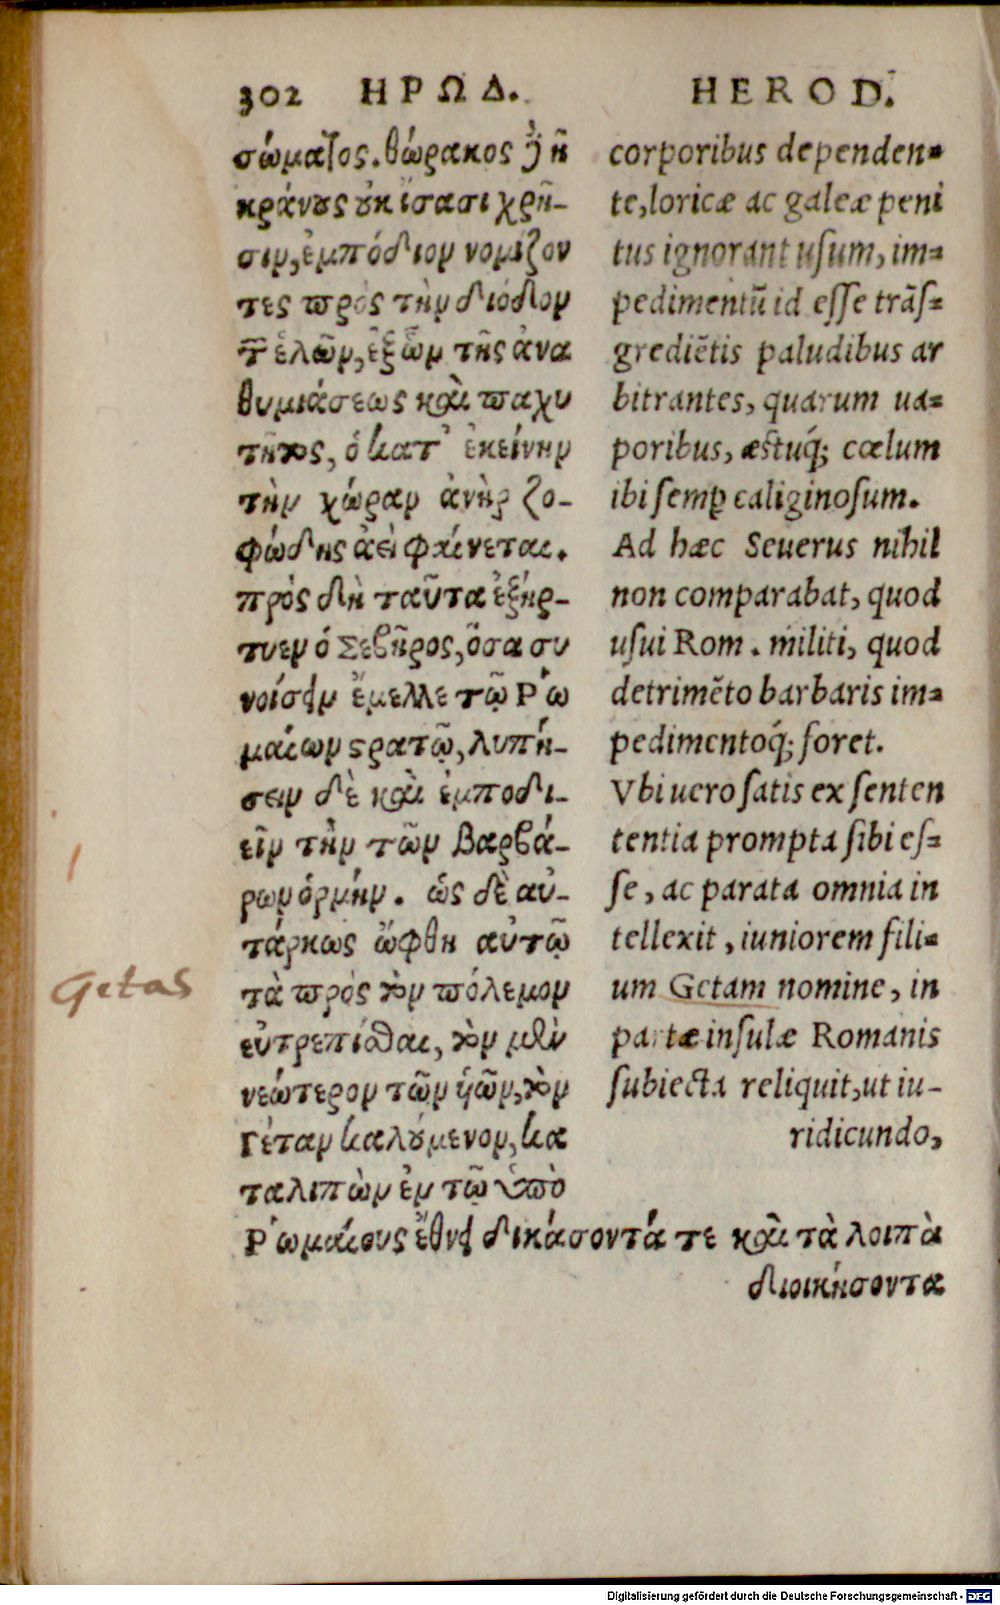 302 ΗΡΩΔ.
σώματος. θώρακος ἢ ἢ
κράνους οὐκ ἴσασι χρῆ-
σιν, ἐμπόδιον νομίζον
τες πρὸς τὴν δίοδον
τ͂ ἑλῶν, ἐξ ὧν τῆς ἀνα
θυμιάσεως καὶ παχυ
τῆτος, ὁ κατ' ἐκείνην
τὴν χώραν ἀνὴρ ζο-
φώδης ἀεὶ φαίνεται.
πρὸς δὴ ταῦτα ἐξήρ-
τυεν ὁ Σεβῆρος, ὅσα συ
νοίσειν ἔμελλε τῷ Ῥω
μαίων στρατῷ, λυπή-
σειν δὲ καὶ ἐμποδι-
εῖν τὴν τῶν βαρβά-
ρων ὁρμήν. ὡς δὲ αὐ-
τάρκως ὤφθη αὐτῷ
τὰ πρὸς τὸν πόλεμον
εὐτρεπίσθαι, τὸν μὲν
νεώτερον τῶν ὑῶν, τὸν
Γέταν καλούμενον, κα
ταλιπὼν ἐν τῷ ὑπὸ
Ῥωμαίους ἔθνει δικάσοντά τε καὶ τὰ λοιπὰ
διοικήσοντα
HEROD.
corporibus dependen-
te, loricæ ac galeæ peni
tus ignorant uſum, im-
pedimentū id eſſe trāſ-
grediētis paludibus ar
bitrantes, quarum ua-
poribus, æſtuq́; cœlum
ibi ſemp̱ caliginoſum.
Ad hæc Seuerus nihil
non comparabat, quod
uſui Rom. militi, quod
detrimēto barbaris im-
pedimentoq́; foret.
Vbi uero ſatis ex ſenten
tentia prompta ſibi eſ-
ſe, ac parata omnia in
tellexit, iuniorem fili-
um Getam nomine, in
partæ inſulæ Romanis
ſubiecta reliquit, ut iu-
ridicundo,
Getas
Digitalisierung gefördert durch die Deutsche Forschungsgemeinschaft - DFG